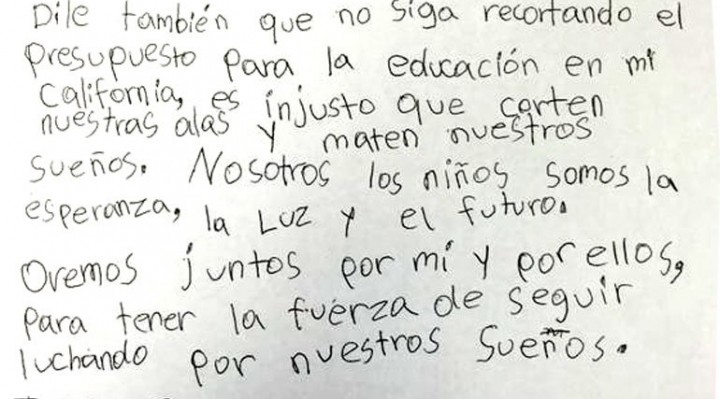 Dile también que no siga recortando el
presupuesto para la educación en mi
California, es injusto que corten
nuestras alas y maten nuestros
sueños. Nosotros los niños somos la
esperanza, la Luz y el futuro.
Oremos juntos por mí y por ellos,
para tener la fuerza de seguir
luchando por nuestros sueños.